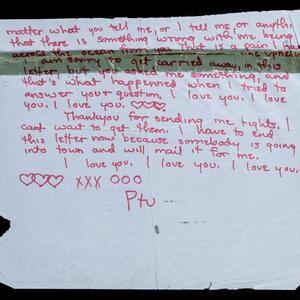 matter what you tell me, or I tell me or anythin
that there is something wrong with me being
across the ocean from you. That is a pain I ha
I am sorry to get carried away, in this
letter, but you asked me something, and
that's what has happened when I tried to
answer your question. I love you. I love
you. I love you.
Thankyou for sending me tights, I
cant wait to get them. I have to end
this letter now because somebody is going
into town and will mail it for me.
I love you. I love you. I love you.
XXX OOO
Ptu